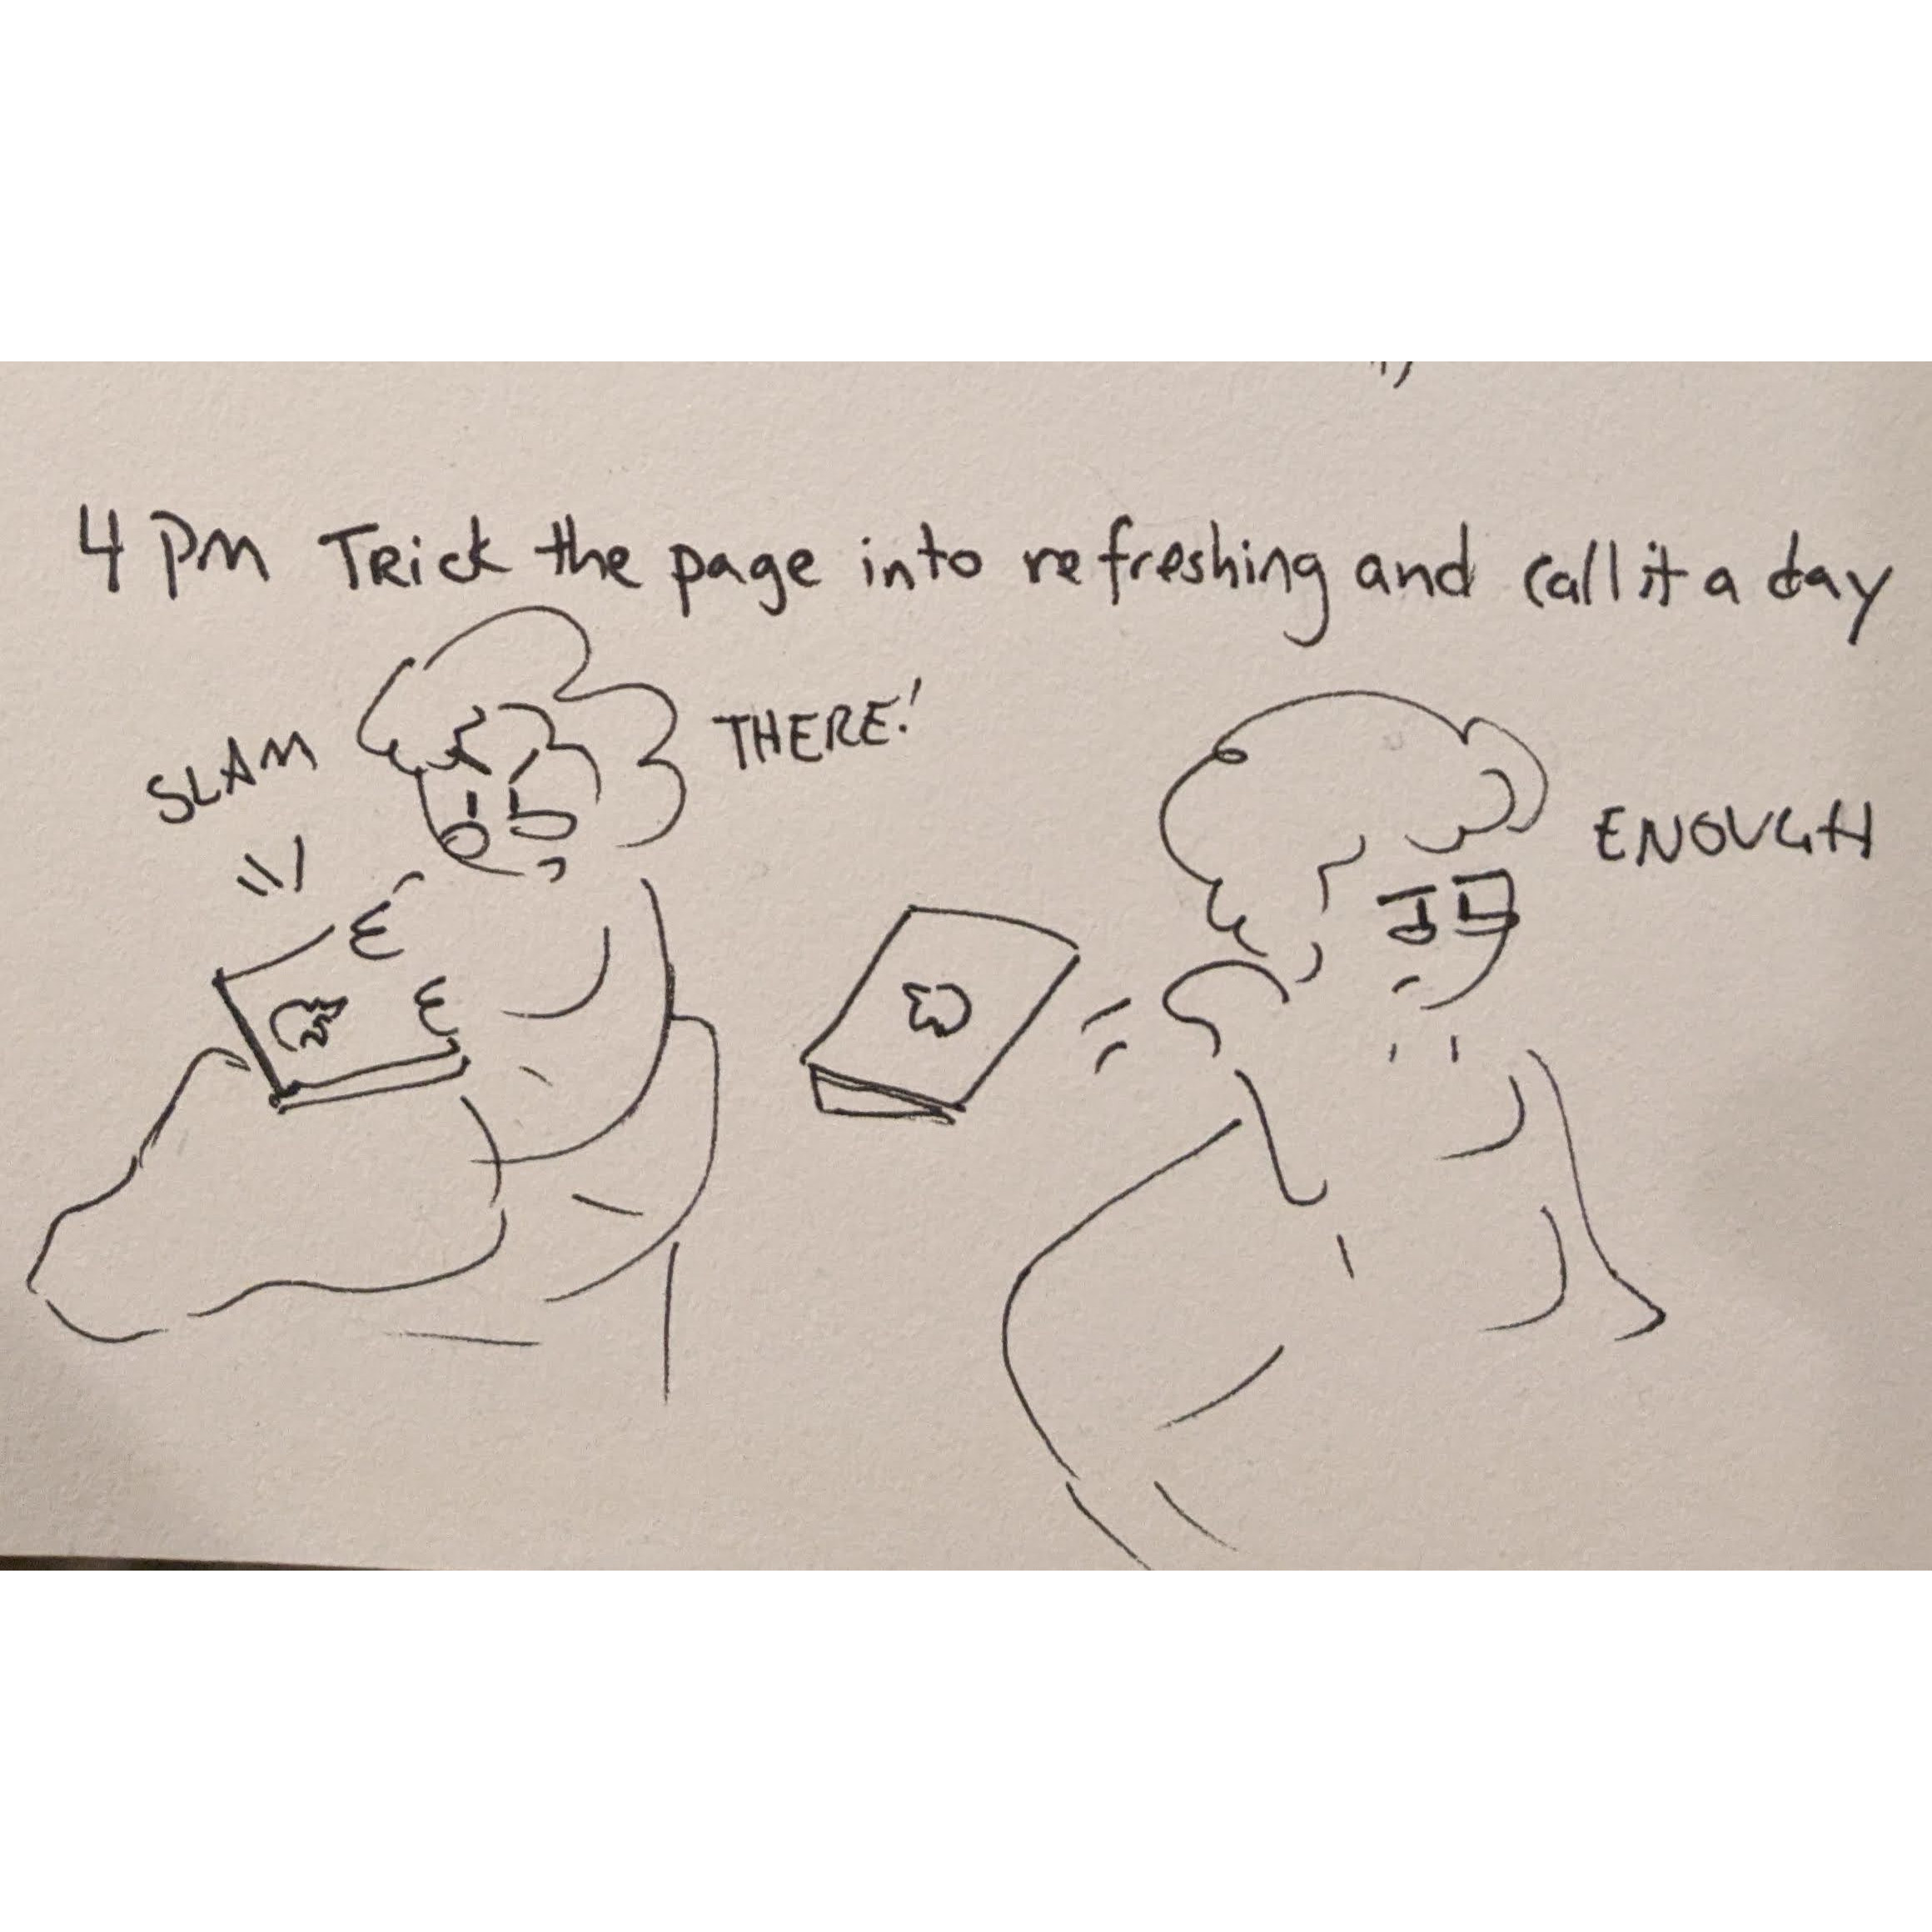 4 PM Trick the page into refreshing and call it a day
SLAM
THERE!
ENOUGH